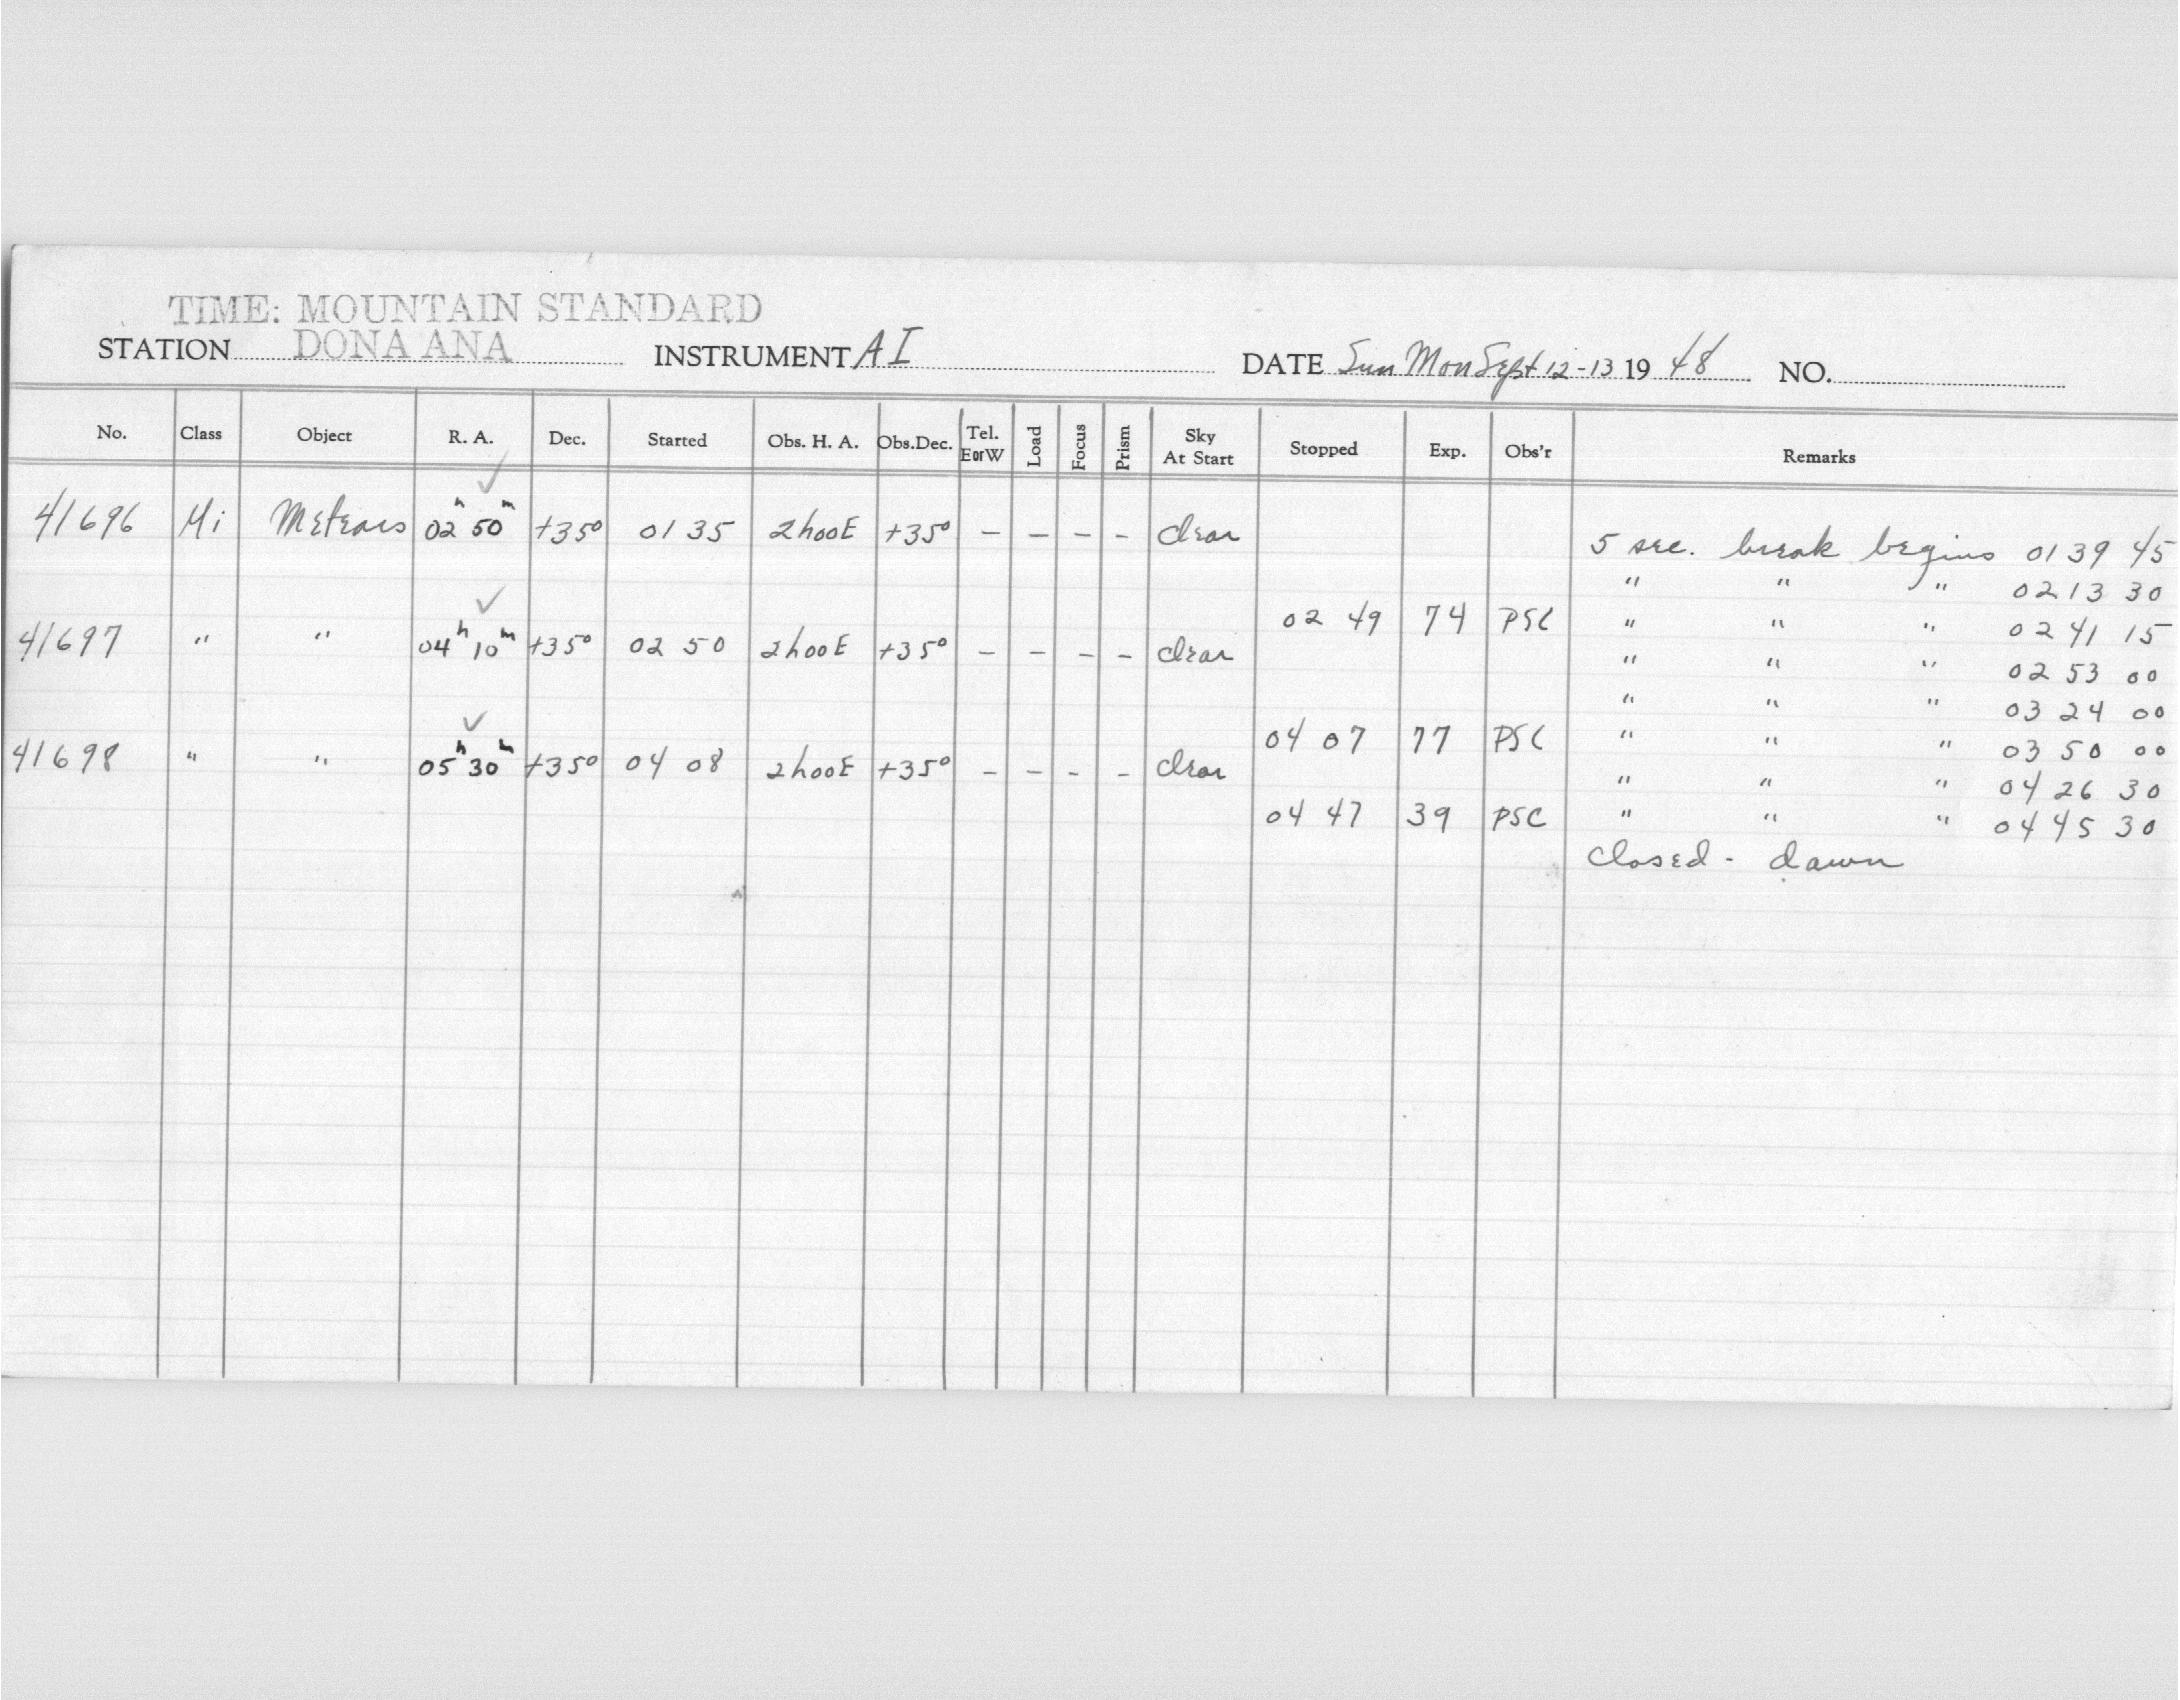 TIME: MOUNTAIN STANDARD
STATION DONA ANA INSTRUMENT AI DATE Sun Mon Sept 12-13 19 48 NO.
No. Class Object R. A. Dec. Started Obs. H. A. Obs.Dec. Tel. EorW Load Focus Prism Sky At Start Stopped Exp. Obs'r Remarks
41696 Mi Meteors 02h 50m +35° 01 35 2h00E +35° – – – – clear
5 sec. break begins 01 39 45
" " " 02 13 30
02 49 74 PSC " " " 02 41 15
41697 " " 04h 10m +35° 02 50 2h00E +35° – – – – clear
" " " 02 53 00
" " " 03 24 00
04 07 77 PSC " " " 03 50 00
41698 " " 05h 30m +35° 04 08 2h00E +35° – – – – clear
" " " 04 26 30
04 47 39 PSC " " " 04 45 30
closed - dawn